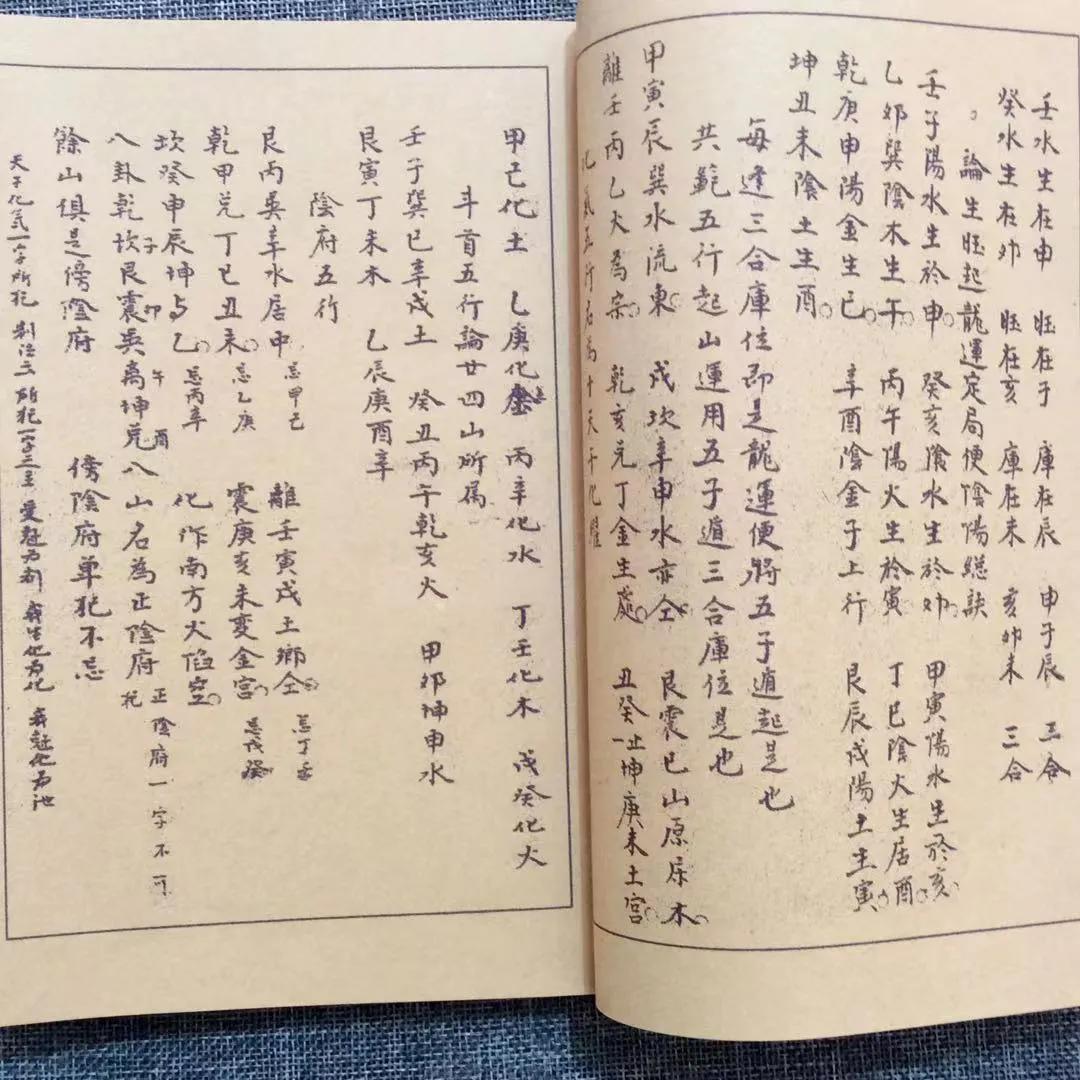 壬水生在申　旺在子　庫在辰　申子辰　三合
癸水生在卯　旺在亥　庫在未　亥卯未　三合
。論生旺起龍運定局便陰陽總訣
壬子陽水生於申　癸亥陰水生於卯　甲寅陽水生於亥
乙卯巽陰木生午　丙午陽火生於寅　丁巳陰火生居酉
乾庚申陽金生巳　辛酉陰金子上行　艮辰戌陽土生寅
坤丑未陰土生酉
每逢三合庫位即是龍運便將五子遁起是也
共範五行起山運用五子遁三合庫位是也
甲寅辰巽水流東　戌坎辛申水亦仝　艮震巳山原屬木
離壬丙乙火為宗　乾亥兌丁金生處　丑癸坤庚未土宮
化氣五行名為十天干化曜
甲己化土　乙庚化金　丙辛化水　丁壬化木　戊癸化火
斗首五行論廿四山所属
壬子巽巳辛戌土　癸丑丙午乾亥火　甲卯坤申水
艮寅丁未木　乙辰庚酉辛
陰府五行
艮丙巽辛水居中　忌甲己　離壬寅戌土鄉仝　忌丁壬
乾甲兌丁巳丑未　忌乙庚　震庚亥未变金宮　忌戊癸
坎癸申辰坤与乙　忌丙辛　化作南方火焰空
八卦乾坎艮震巽离坤兌八山名為正陰府　正陰府一字不可
子卯午酉
餘山俱是傍陰府　傍陰府单犯不忌
天干化氣一字所犯　制法云所犯一字三主　受尅为制